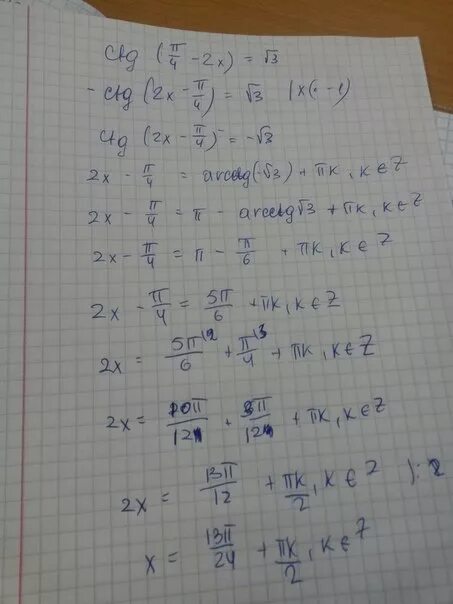 ctg (π/4 - 2x) = √3
-ctg (2x - π/4) = √3 |x(-1)
ctg (2x - π/4) = -√3
2x - π/4 = arcctg(-√3) + πk, k∈Z
2x - π/4 = π - arcctg√3 + πk, k∈Z
2x - π/4 = π - π/6 + πk, k∈Z
2x - π/4 = 5π/6 + πk, k∈Z
2x = 5π/6 |2 + π/4 |3 + πk, k∈Z
2x = 10π/12 + 3π/12 + πk, k∈Z
2x = 13π/12 + πk/2, k∈Z ): 2
x = 13π/24 + πk/2, k∈Z